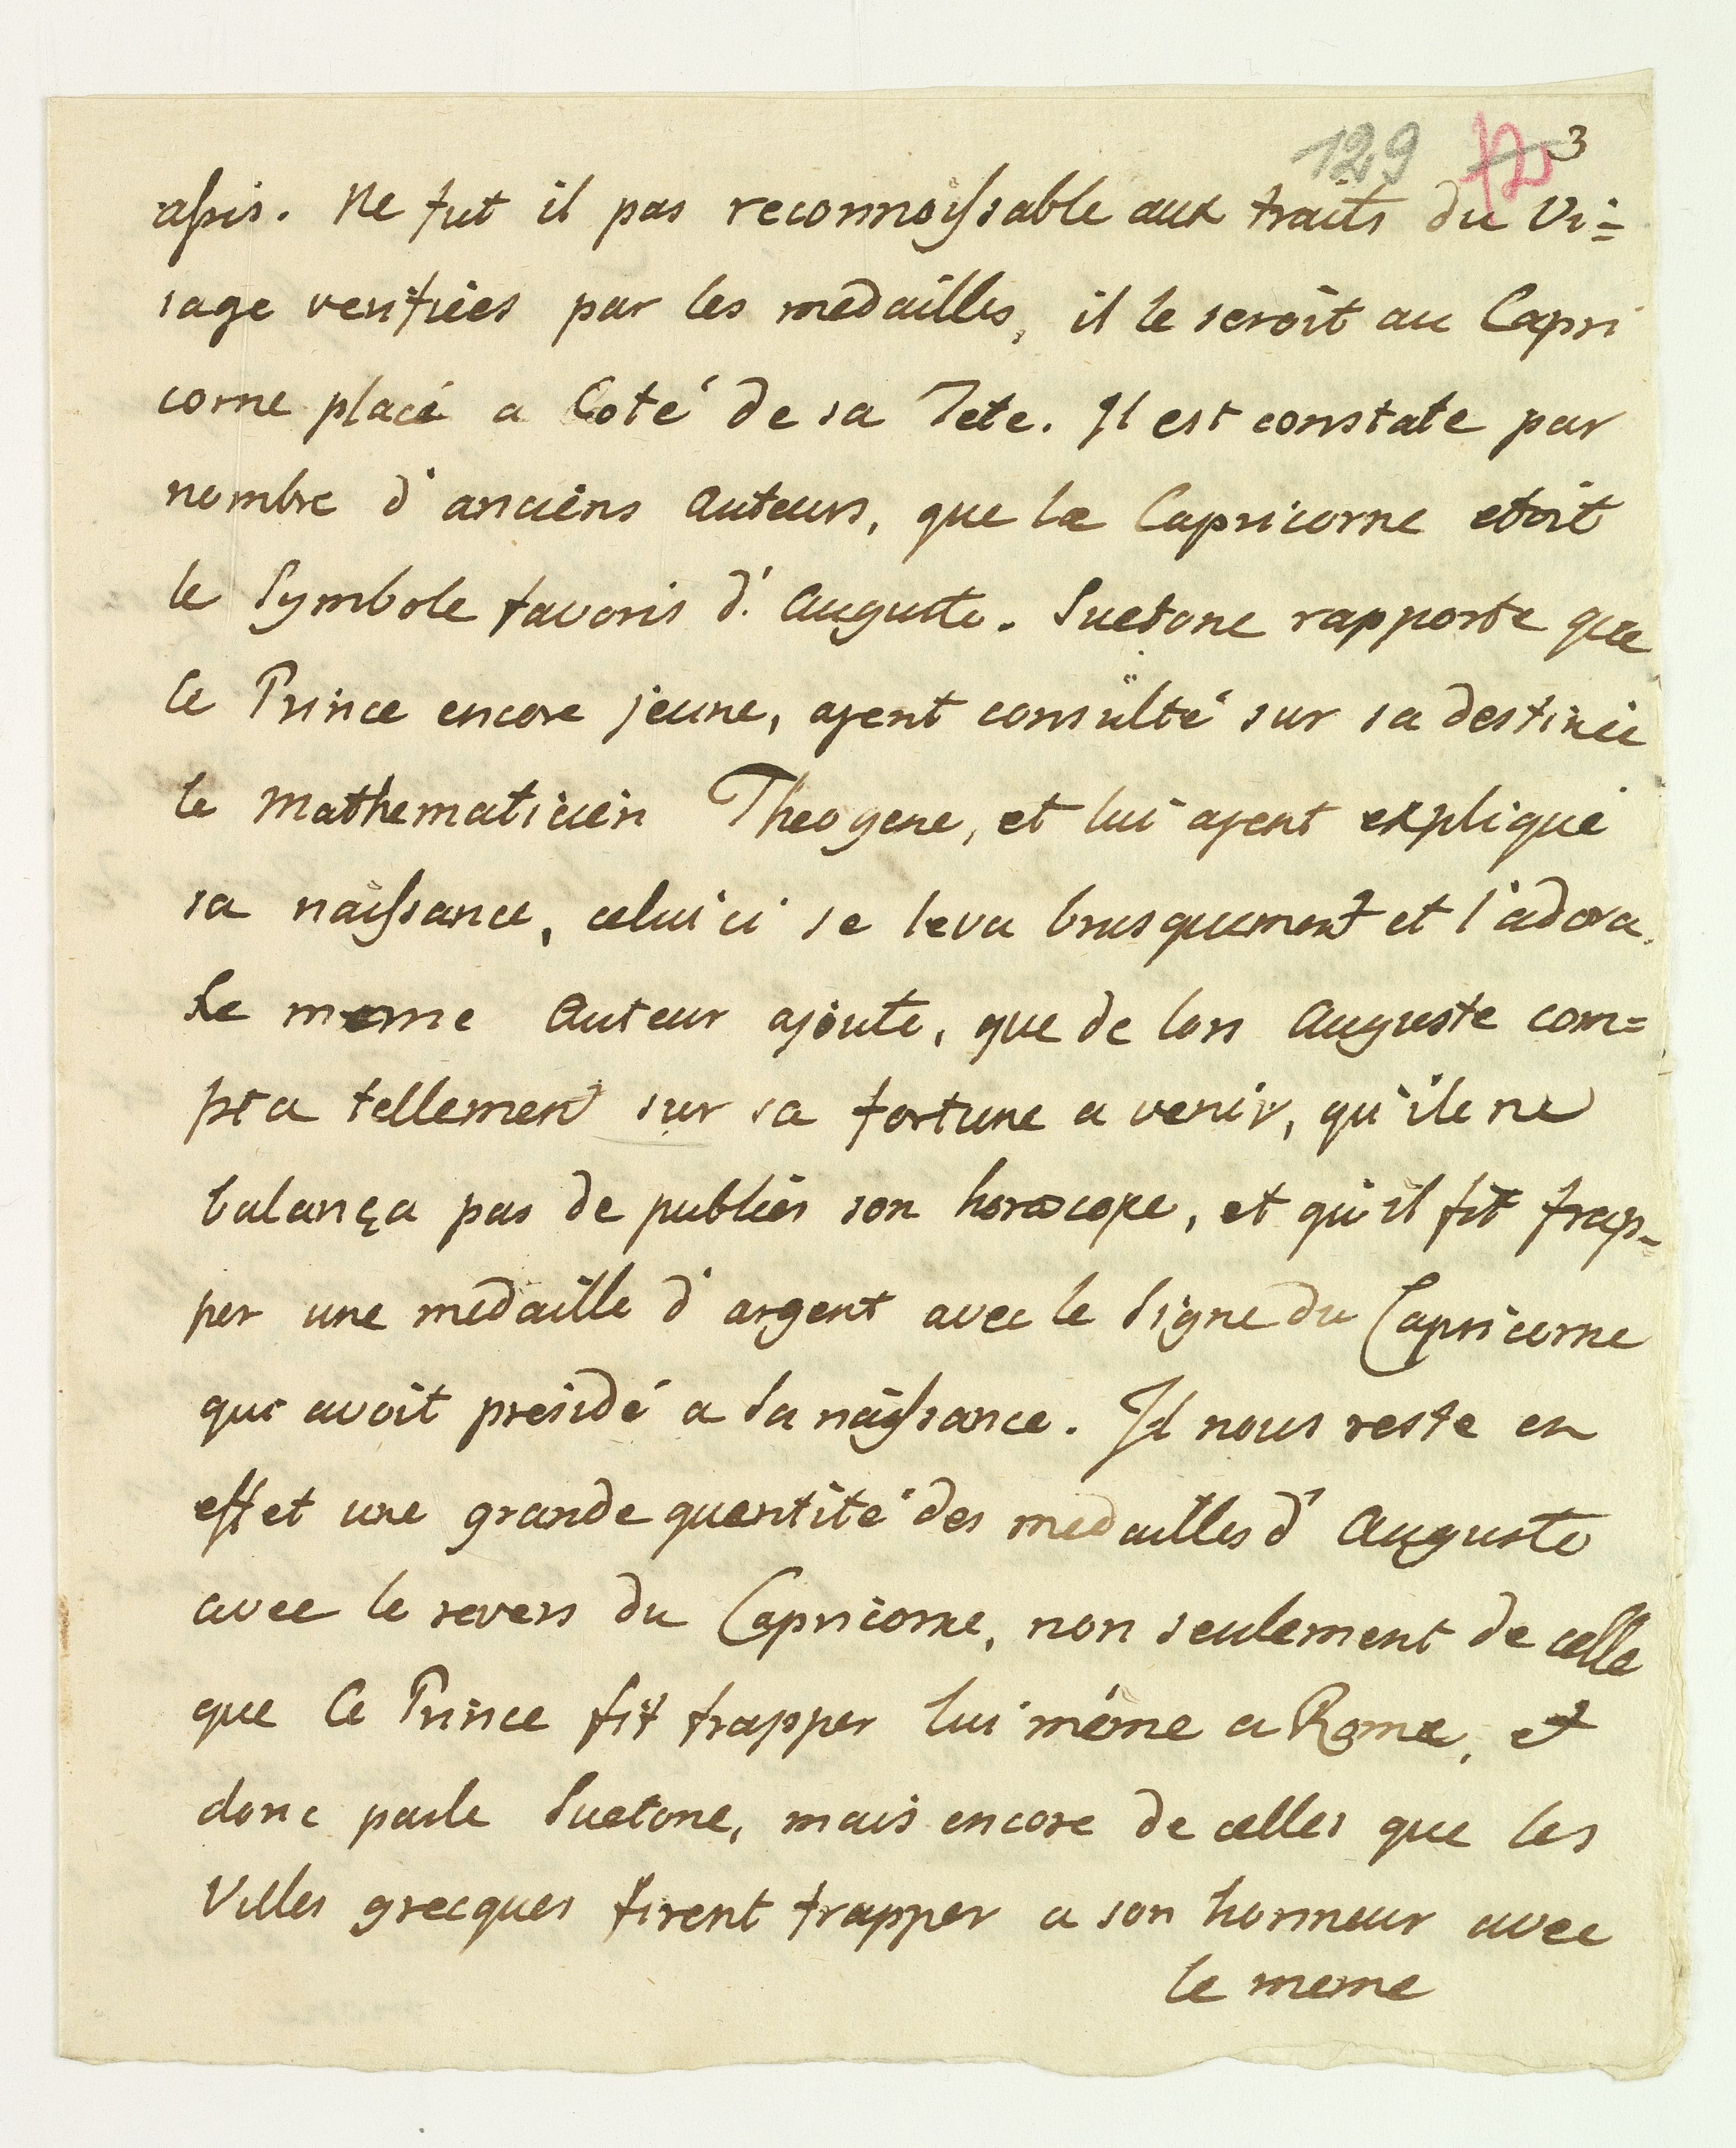 129 12 3
assis. Ne fut il pas reconnoissable aux traits du Vi=
sage verifiées par les medailles, il le seroit au Capri
corne placé a Coté de sa Tete. Il est constate par
nombre d'anciens Auteurs, que le Capricorne etoit
le Symbole favoris d'Auguste. Suetone rapporte que
ce Prince encore jeune, ayent consulté sur sa destinée
le Mathematicien Theogene, et lui ayent expliqué
sa naissance, celui ci se leva brusquement et l'adora.
Le meme Auteur ajoute, que de lors Auguste com=
pta tellement sur sa fortune a venir, qu'ile ne
balança pas de publier son horoscope, et qu'il fit frap-
per une medaille d'argent avec le Signe du Capricorne
qui avoit presidé a sa naissance. Il nous reste en
effet une grande quantité des medailles d'Auguste
avec le revers du Capricorne, non seulement de celle
que Ce Prince fit frapper lui même a Rome, et
donc parle Suetone, mais encore de celles que les
Villes grecques firent frapper a son honneur avec
le meme